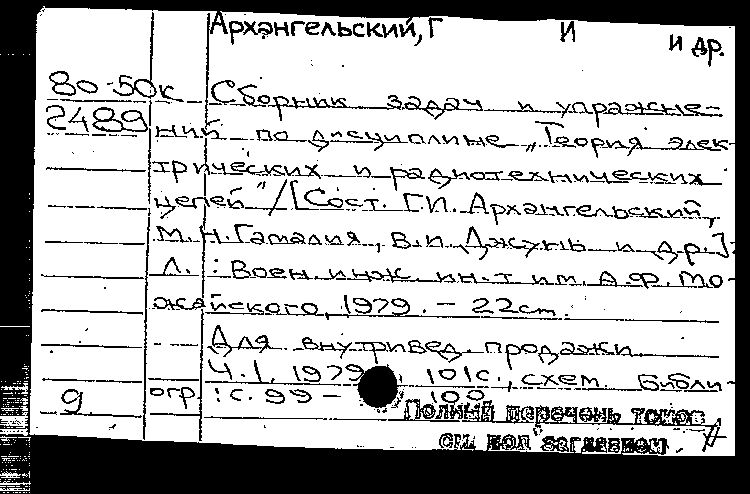 Архангельский, Г И и др.
80-50к Сборник задач и упражне-
2489 ний по дисциплине „Теория элек-
трических и радиотехнических
цепей"/[Сост. Г.И. Архангельский,
М.Н. Гамалия, В.И. Джунь и др.]-
Л.: Воен. инж. ин-т им. А.Ф. Мо-
жайского, 1979. - 22 см.
Для внутривед. продажи
Ч.1. 1979 101 с., схем. Библи-
9 огр.: с. 99 - 100
Полный перечень томов
см под "заглавием